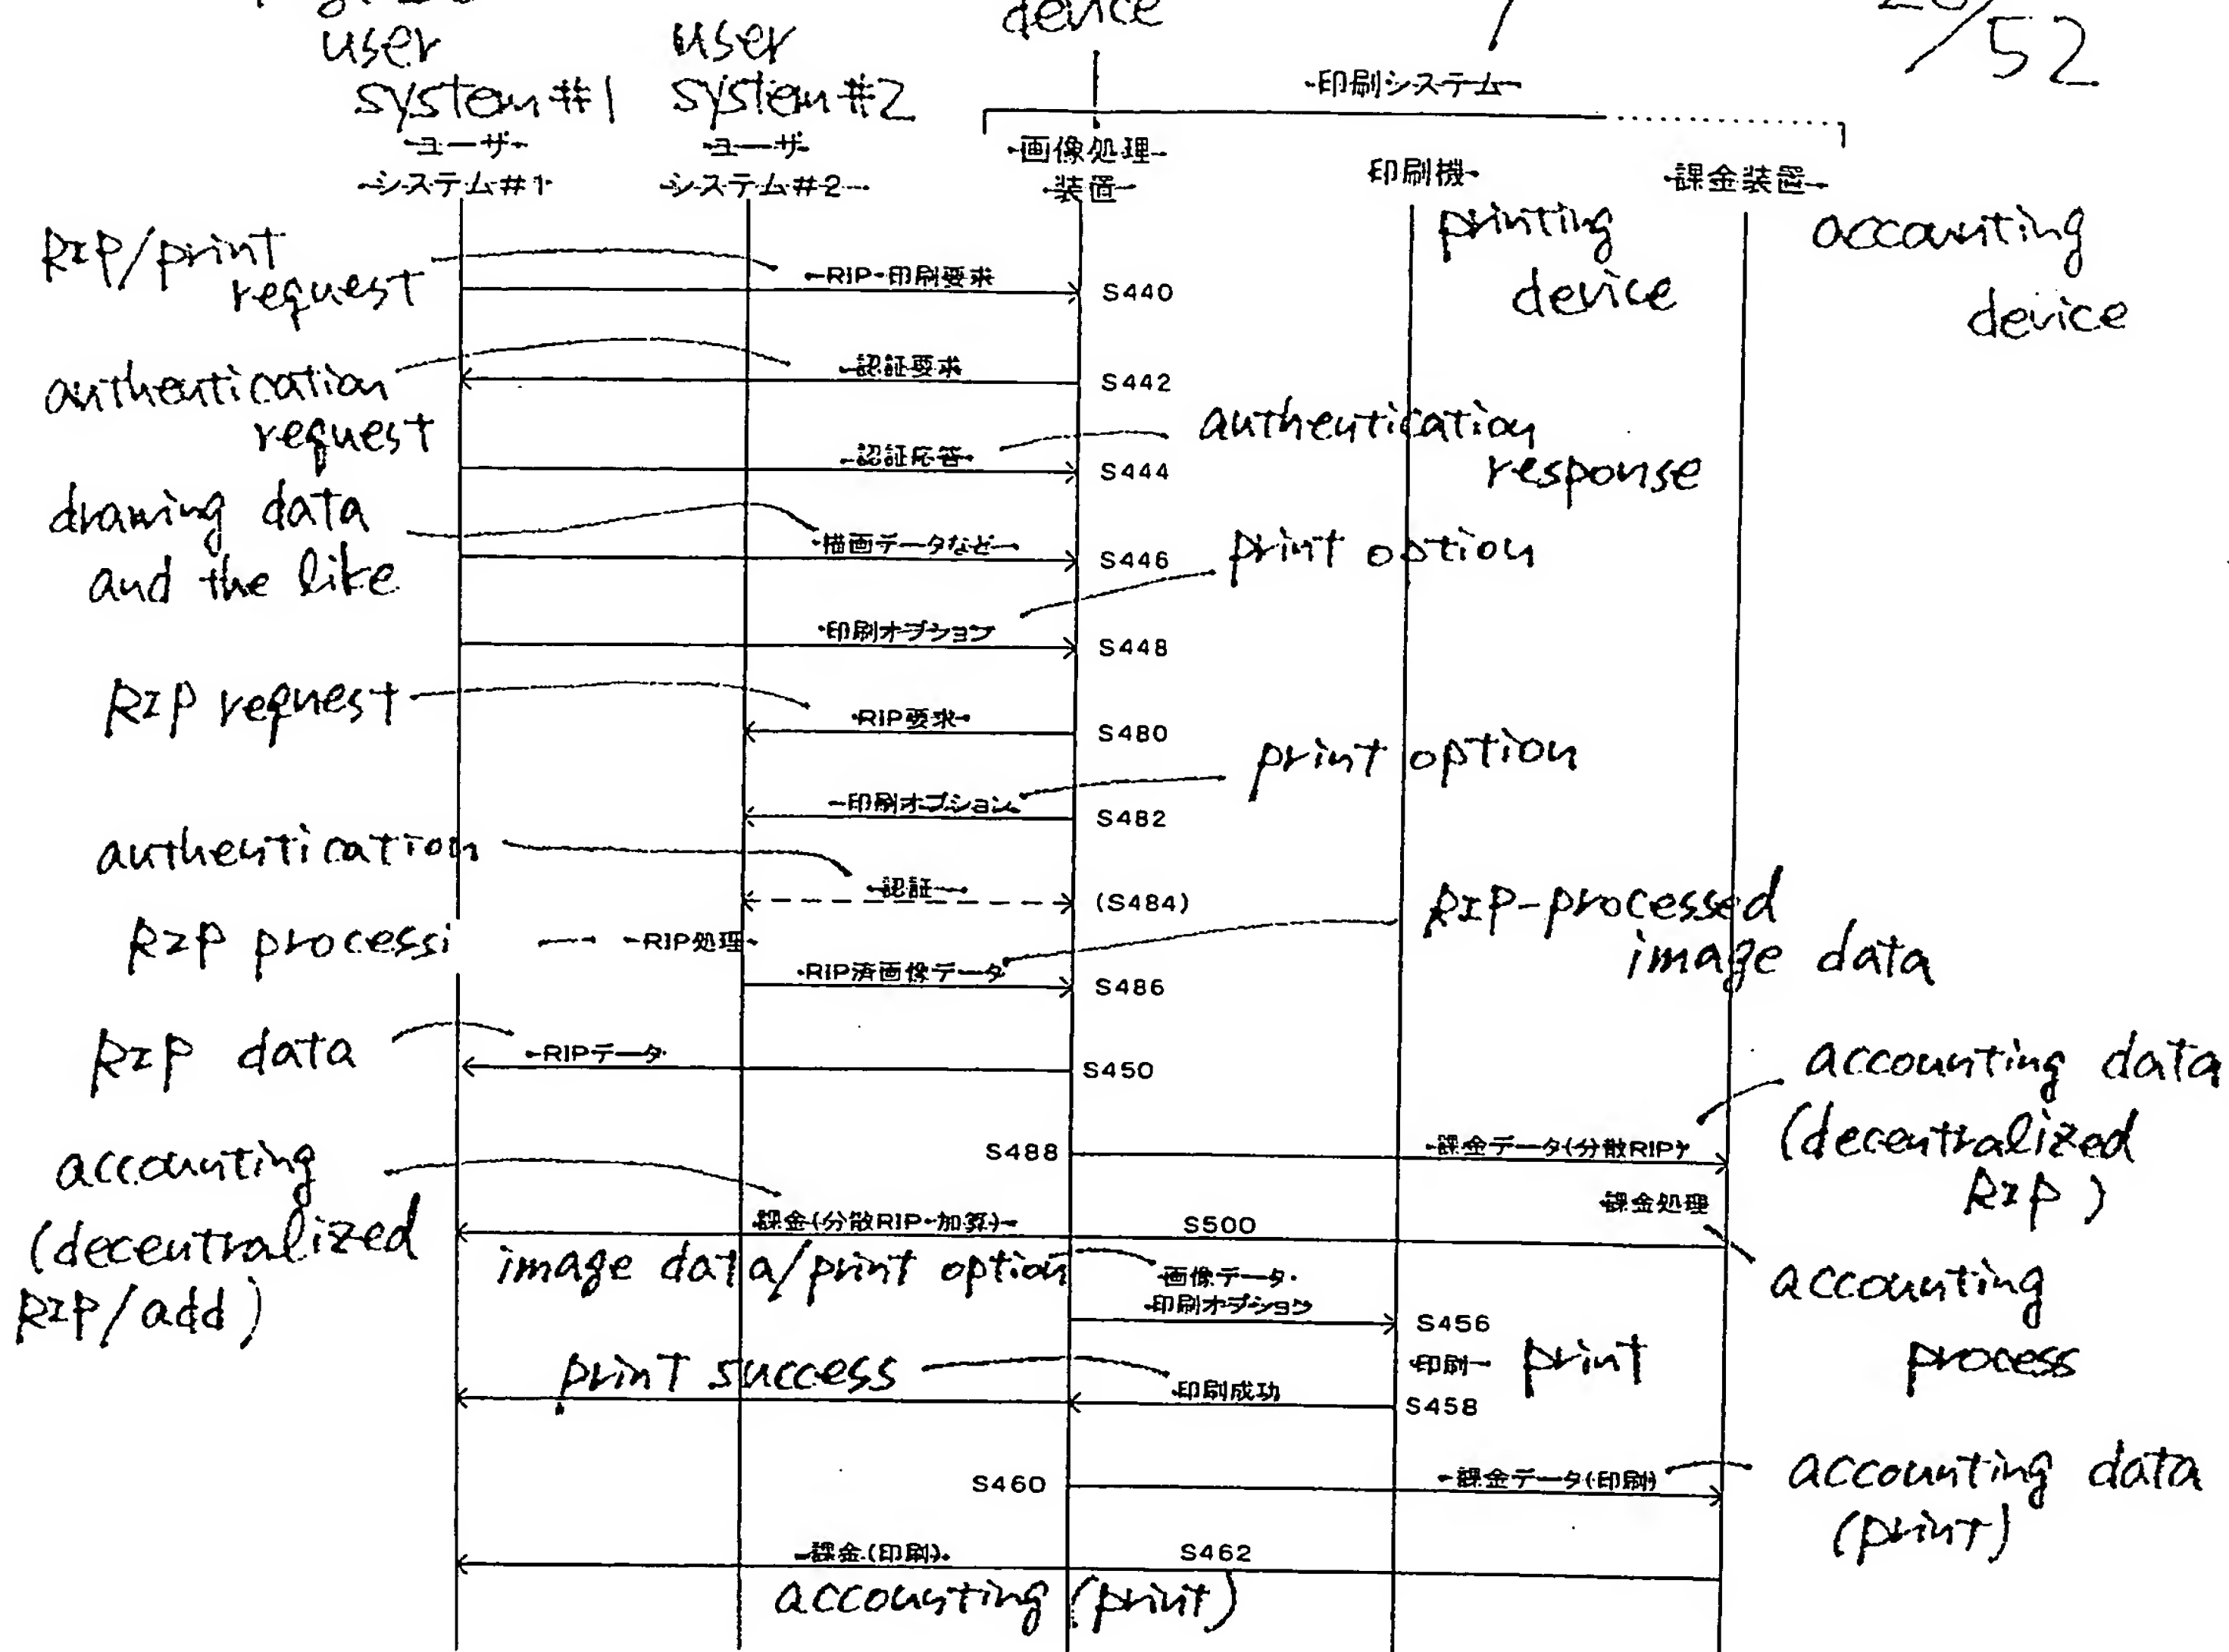 user
user
device
/52
system#1
system#2
印刷システム
ユーザ
システム#1
ユーザ
システム#2
画像処理
装置
印刷機
課金装置
printing
device
accounting
device
RIP/print
request
RIP・印刷要求
S440
authentication
request
認証要求
S442
authentication
response
認証応答
S444
drawing data
and the like
描画データなど
S446
print option
印刷オプション
S448
RIP request
RIP要求
S480
print option
印刷オプション
S482
authentication
認証
(S484)
RIP processi
RIP処理
RIP-processed
image data
RIP済画像データ
S486
RIP data
RIPデータ
S450
accounting data
(decentralized
RIP)
S488
課金データ(分散RIP)
accounting
(decentralized
RIP/add)
課金(分散RIP・加算)
S500
課金処理
accounting
process
image data/print option
画像データ・
印刷オプション
S456
印刷
print
print success
印刷成功
S458
S460
課金データ(印刷)
accounting data
(print)
課金(印刷)
S462
accounting (print)